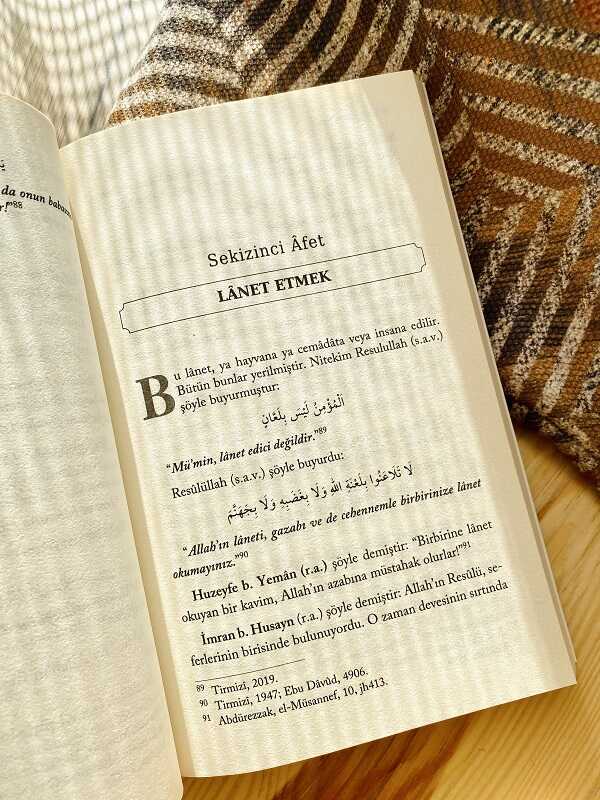 da onun babasın
r!"88
Sekizinci Âfet
LÂNET ETMEK
Bu lânet, ya hayvana ya cemâdâta veya insana edilir.
Bütün bunlar yerilmiştir. Nitekim Resulullah (s.a.v.)
şöyle buyurmuştur:
اَلْمُؤْمِنُ لَيْسَ بِلَعَّانٍ
"Mü'min, lânet edici değildir."89
Resûlüllah (s.a.v.) şöyle buyurdu:
لَا تَلَاعَنُوا بِلَعْنَةِ اللّٰهِ وَلَا بِغَضَبِهِ وَلَا بِجَهَنَّمَ
"Allah'ın lâneti, gazabı ve de cehennemle birbirinize lânet
okumayınız."90
Huzeyfe b. Yemân (r.a.) şöyle demiştir: "Birbirine lânet
okuyan bir kavim, Allah'ın azabına müstahak olurlar!"91
İmran b. Husayn (r.a.) şöyle demiştir: Allah'ın Resûlü, se-
ferlerinin birisinde bulunuyordu. O zaman devesinin sırtında
89 Tirmizî, 2019.
90 Tirmizî, 1947; Ebu Dâvûd, 4906.
91 Abdürezzak, el-Müsannef, 10, jh413.